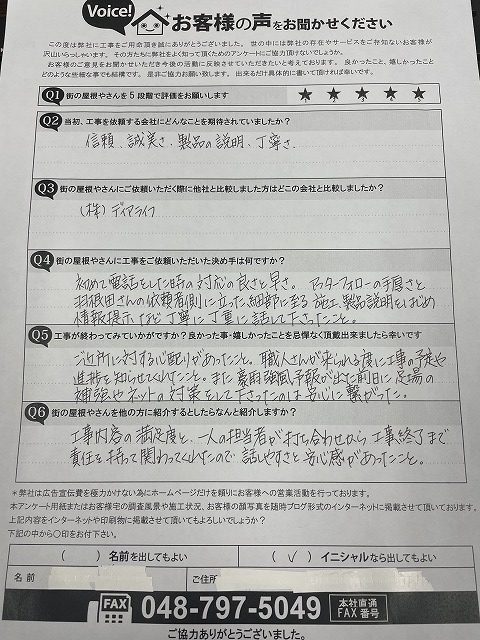 Voice!
お客様の声をお聞かせください
この度は弊社に工事をご用命頂き誠にありがとうございました。世の中には弊社の存在やサービスをご存知ないお客様が
沢山いらっしゃいます。その方たちに弊社をよく知って頂くためのアンケートにご協力頂けないでしょうか？
お客様のご意見をお聞かせいただき今後の活動に反映させていただきたいと考えております。良かったこと、嬉しかったこと
どのような些細な事でも結構です。是非ご協力お願い致します。出来るだけ具体的に書いて頂ければ幸いです。
Q1 街の屋根やさんを5段階で評価をお願いします ★ ★ ★ ★ ★
Q2 当初、工事を依頼する会社にどんなことを期待されていましたか？
信頼、誠実さ、製品の説明、丁寧さ
Q3 街の屋根やさんにご依頼いただく際に他社と比較しました方はどこの会社と比較しましたか？
(株) ディアライフ
Q4 街の屋根やさんに工事をご依頼いただいた決め手は何ですか？
初めて電話をした時の対応の良さと早さ。アフターフォローの手厚さと
羽根田さんの依頼者側に立った細部に至る施工、製品説明をはじめ
情報提示など丁寧に丁寧に話して下さったこと。
Q5 工事が終わってみていかがですか？良かった事・嬉しかったことを忌憚なく頂戴出来ましたら幸いです
ご近所に対する心配りがあったこと。職人さんが来られる度に工事の予定や
進捗を知らせてくれたこと。また豪雨強風予報が出た前日に足場の
補強やネットの対策をして下さったのは安心に繋がった。
Q6 街の屋根やさんを他の方に紹介するとしたらなんと紹介しますか？
工事内容の満足度と、一人の担当者が打ち合わせから工事終了まで
責任を持って関わってくれたので話しやすさと安心感があったこと。
＊弊社は広告宣伝費を極力かけない為にホームページだけを頼りにお客様への営業活動を行っております。
本アンケート用紙またはお客様宅の調査風景や施工状況、お客様の顔写真を随時ブログ形式のインターネットに掲載させて頂いております。
上記内容をインターネットや印刷物に掲載させて頂いてもよろしいでしょうか？
下記の中から○印をお付下さい。
( ) 名前を出してもよい ( ✓ ) イニシャルなら出してもよい
名前 ご住所
FAX 048-797-5049 本社直通 FAX番号
ご協力ありがとうございました。